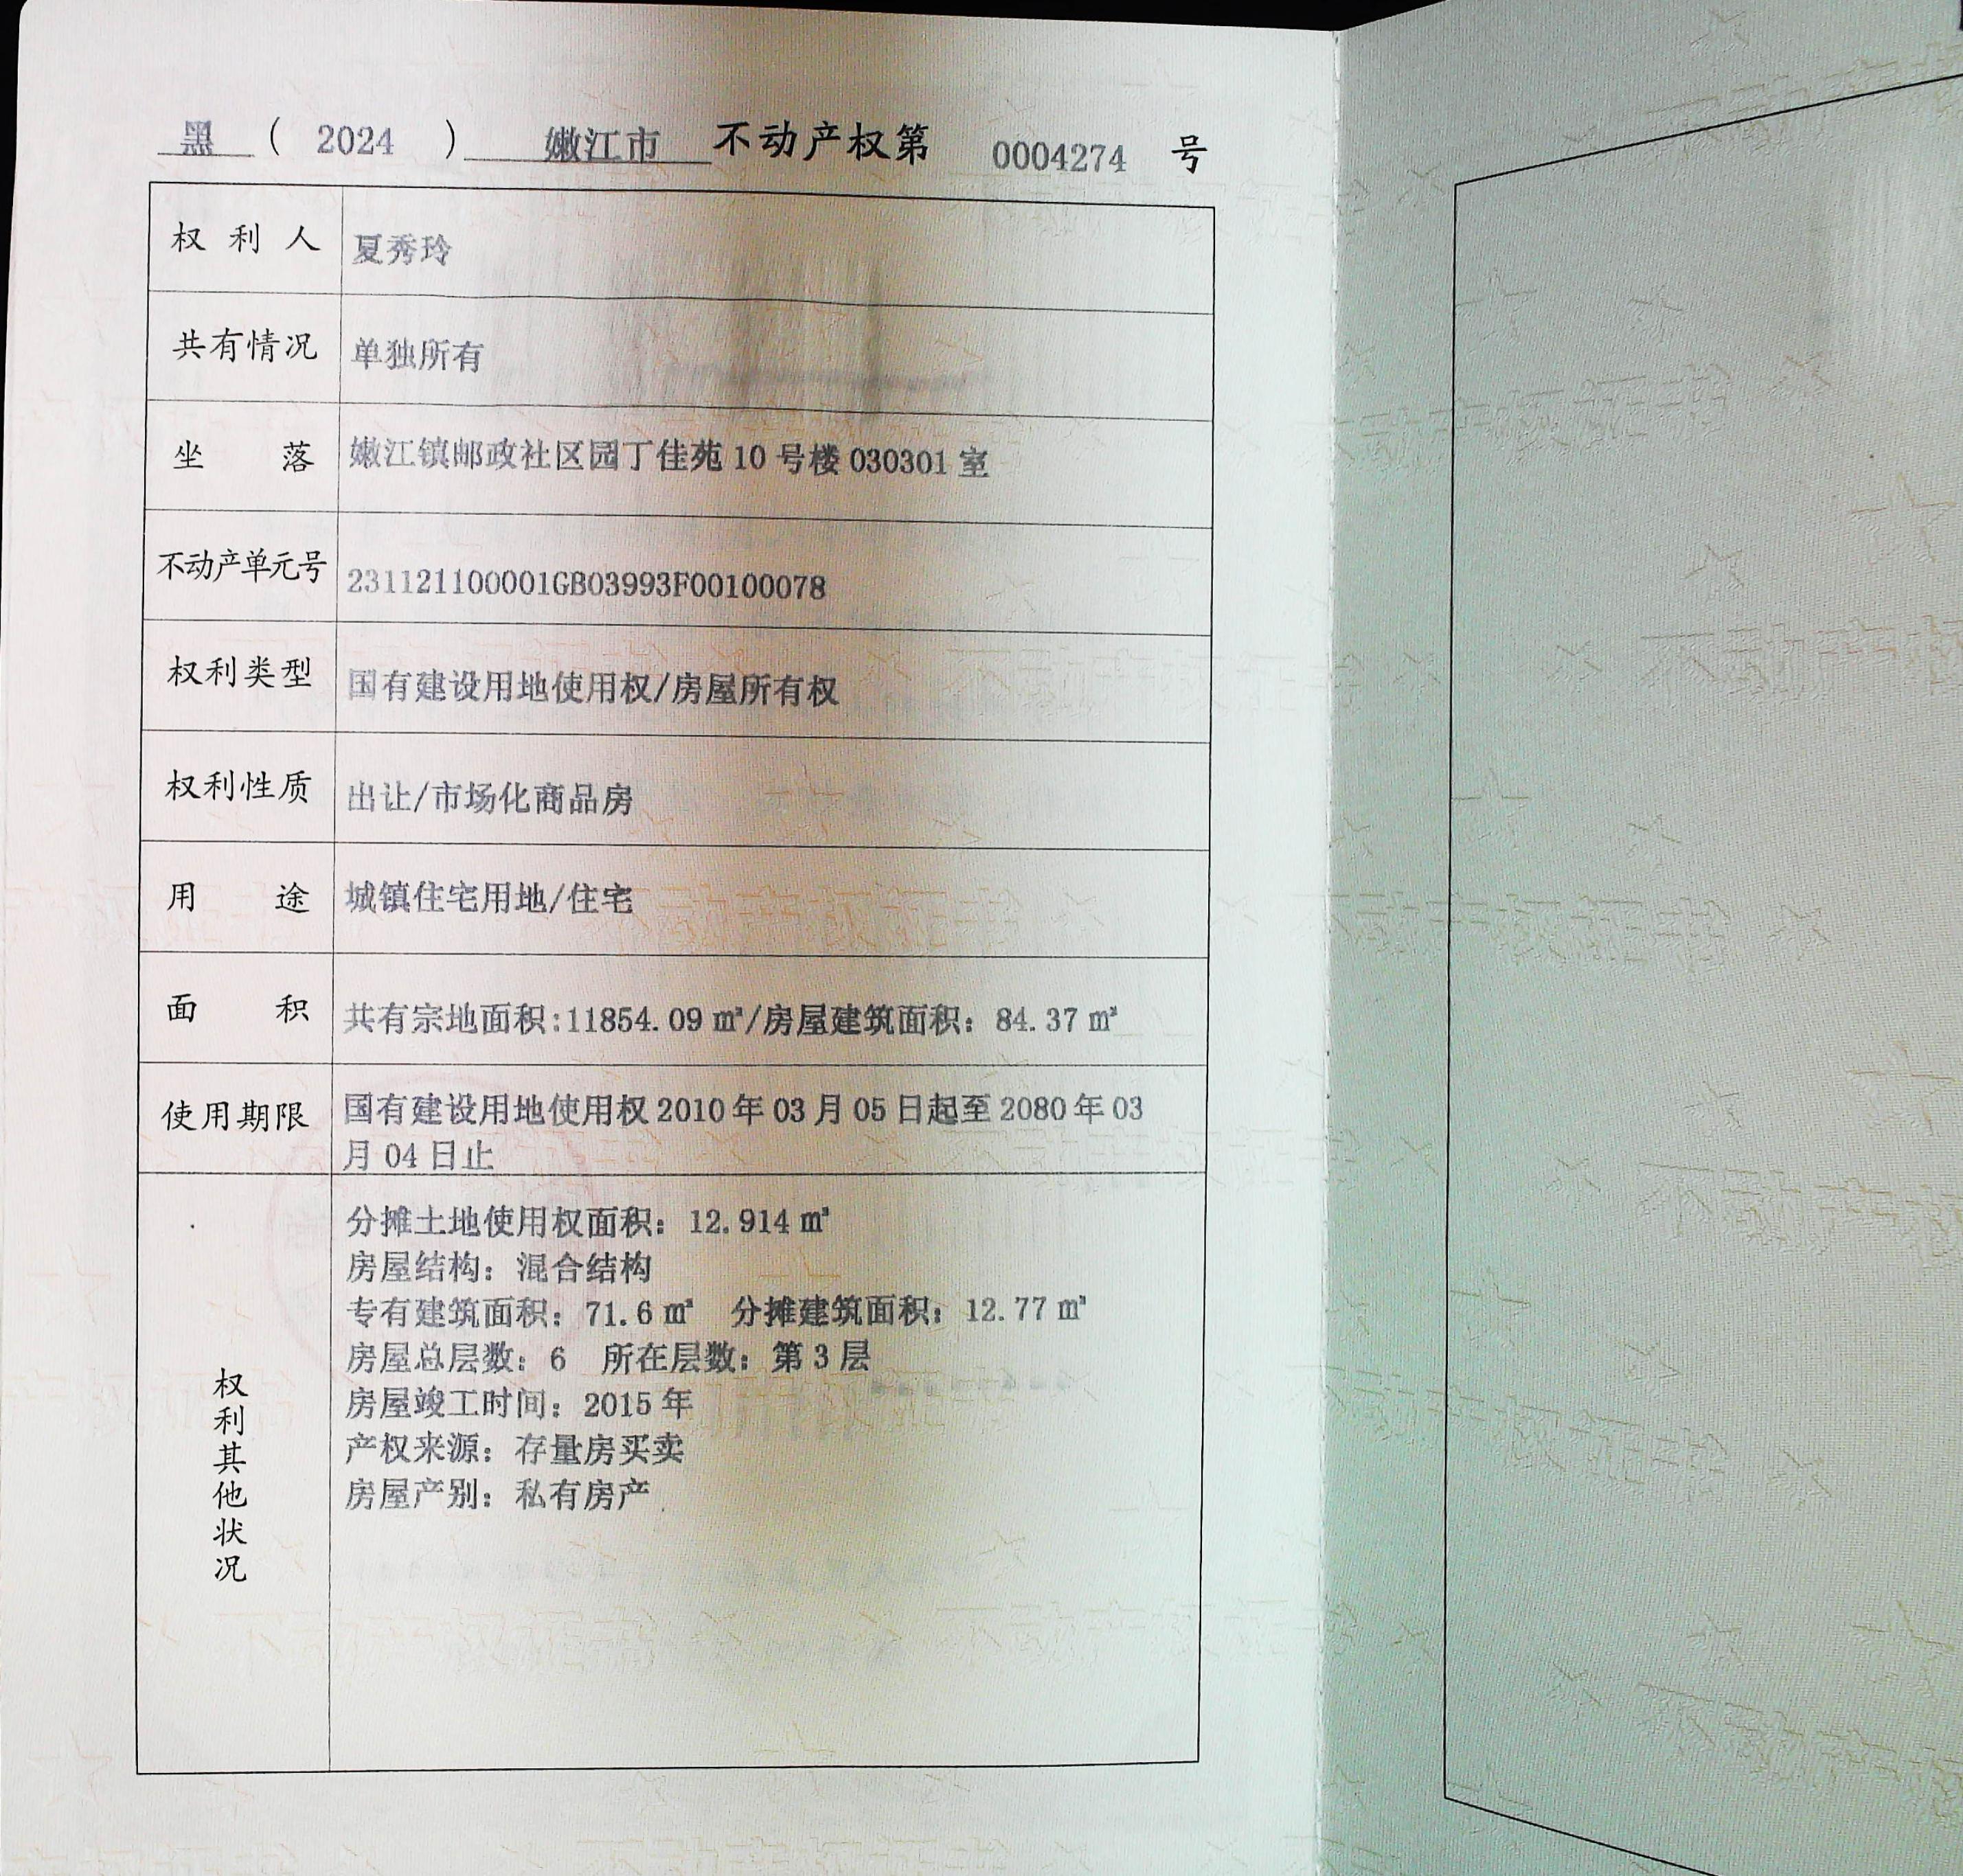 黑 ( 2024 ) 嫩江市 不动产权第 0004274 号
权利人 夏秀玲
共有情况 单独所有
坐落 嫩江镇邮政社区园丁佳苑 10 号楼 030301 室
不动产单元号 231121100001GB03993F00100078
权利类型 国有建设用地使用权/房屋所有权
权利性质 出让/市场化商品房
用途 城镇住宅用地/住宅
面积 共有宗地面积:11854.09 ㎡/房屋建筑面积：84.37 ㎡
使用期限 国有建设用地使用权 2010 年 03 月 05 日起至 2080 年 03
月 04 日止
权利其他状况
分摊土地使用权面积：12.914 ㎡
房屋结构：混合结构
专有建筑面积：71.6 ㎡ 分摊建筑面积：12.77 ㎡
房屋总层数：6 所在层数：第 3 层
房屋竣工时间：2015 年
产权来源：存量房买卖
房屋产别：私有房产